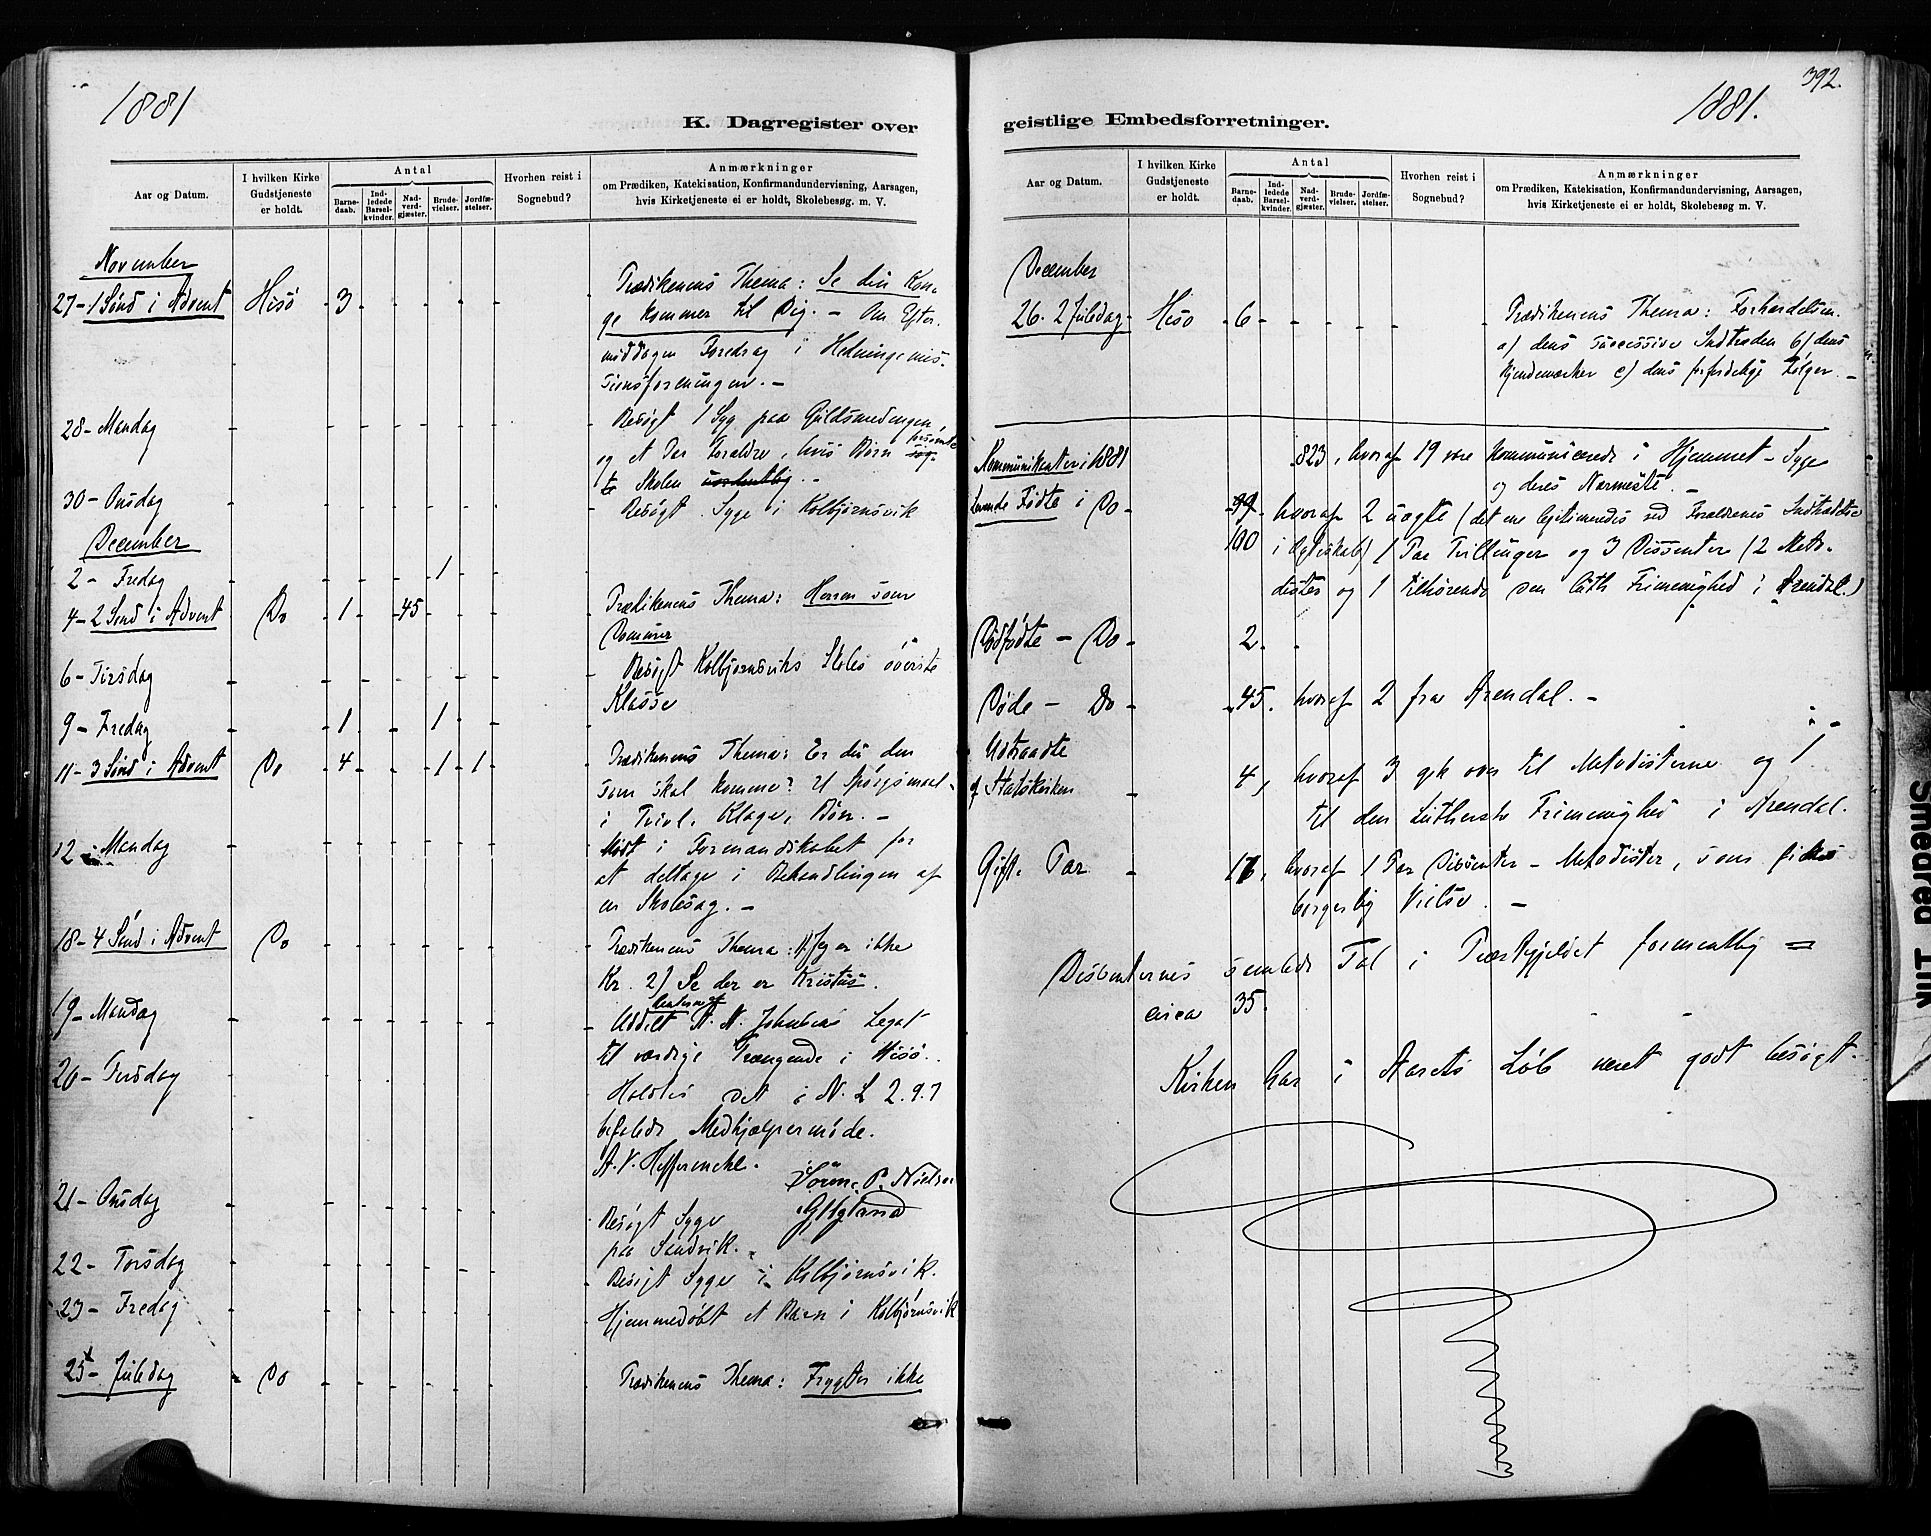 1881
K. Dagregister over
Aar og Datum.
I hvilken Kirke Gudstjeneste er holdt.
Antal
Barne-daab.
Ind-ledede Barsel-kvinder.
Nad-verd-gjæster.
Brude-vielser.
Jordfæ-stelser.
Hvorhen reist i Sognebud?
Anmærkninger
om Prædiken, Katekisation, Konfirmandundervisning, Aarsagen,
hvis Kirketjeneste ei er holdt, Skolebesøg. m. V.
November
27 - 1 Sönd i Advent Hisö 3 - - - - - Prædikenens Thema: Se din Kon-
ge kommer til Dig. - Om Efter-
middagen Foredrag i Hedningemis-
sionsforeningen. -
28 - Mandag - - - - - - - Besøgt 1 Syg paa Guldsmedengen,
og et Par Forældre, hvis Børn forsømte
Skolen uordentlig. -
30 - Onsdag - - - - - - - Besøgt Syge i Kolbjørnsvik
December
2 - Fredag - - - - 1 - -
4 - 2 Sönd i Advent Do 1 - 45 - - - Prædikenens Thema: Herren som
Dommer
6 - Tirsdag - - - - - - - Besøgt Kolbjørnsviks Skoles øverste
Klasse
9 - Fredag - 1 - - 1 - -
11 - 3 Sönd i Advent Do 4 - - 1 1 - Prædikenens Thema: Er du den
som skal komme? Et Spörgsmaal
i Tvivl, Klage, Bön. -
12 - Mandag - - - - - - - Mødt i Formandskabet for
at deltage i Behandlingen af
en Skolesag. -
18 - 4 Sönd i Advent Do - - - - - - Prædikenens Thema: 1) Jeg er ikke
Kr. 2) Se der er Kristus.
19 - Mandag - - - - - - - Uddelt Renterne af A. N. Legat
til værdige Trængende i Hisö.
20 - Tirsdag - - - - - - - Holdtes det i N. L 2.9.7
befalede Medhjælpermöde.
A. V. Heffermehl. Sören P. Nielsen
21 - Onsdag - - - - - - - Besøgt Syge
paa Sandvik.
22 - Torsdag - - - - - - - Besøgt Syge i Kolbjørnsvik.
23 - Fredag - - - - - - - Hjemmedøbt et Barn i Kolbjørnsvik
25 - Juledag - Do - - - - - - Prædikenens Thema: Frygter ikke
392.
1881.
geistlige Embedsforretninger.
Aar og Datum.
I hvilken Kirke Gudstjeneste er holdt.
Antal
Barne-daab.
Ind-ledede Barsel-kvinder.
Nad-verd-gjæster.
Brude-vielser.
Jordfæ-stelser.
Hvorhen reist i Sognebud?
Anmærkninger
om Prædiken, Katekisation, Konfirmandundervisning, Aarsagen,
hvis Kirketjeneste ei er holdt, Skolebesøg m. V.
December
26. 2 Juledag - Hisö - 6 - - - - - Prædikenens Thema: Forhærdelsen.
a) dens successive Indtræden b) dens
Kjendemærker c) dens forfærdelige Følger. -
Kommunikanter i 1881 823, hvoraf 19 vare kommunicerede i Hjemmet - Syge
og deres Nærmeste. -
Levende Fødte i Do - 99 hvoraf 2 uægte (det ene legitimeredes ved Forældrenes Indtrædelse
100 i Ægteskab) 1 Par Tvillinger og 3 Dissenter (2 Meto-
dister og 1 tilhørende den luth Frimenighed i Arendal.)
Dødfødte - Do - 2.
Døde - Do - 45. hvoraf 2 fra Arendal. -
Udtraadte
af Statskirken - 4, hvoraf 3 gik over til Metodisterne og 1
til den Lutherske Frimenighed i Arendal.
Gift. Par. - 17, hvoraf 1 Par Dissenter - Metodister, som fik
borgerlig Vielse. -
Dissenternes samlede Tal i Præstegjeldet formentlig =
circa 35.
Kirken har i Aarets Løb været godt besøgt.
Smedred Trik